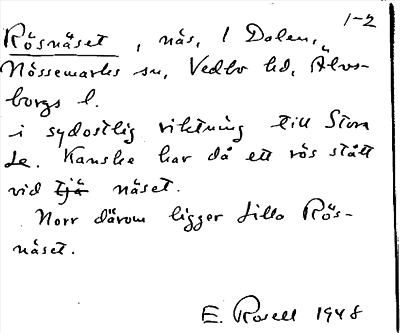 1-2
Rösnäset, näs, I Dalen,
Nössemarks sn, Vedbo hd, Älvs-
borgs l.
i sydostlig riktning till Stora
Le. Kanske har då ett rös stått
vid tjä näset.
Norr därom ligger Lilla Rös-
näset.
E. Rosell 1948